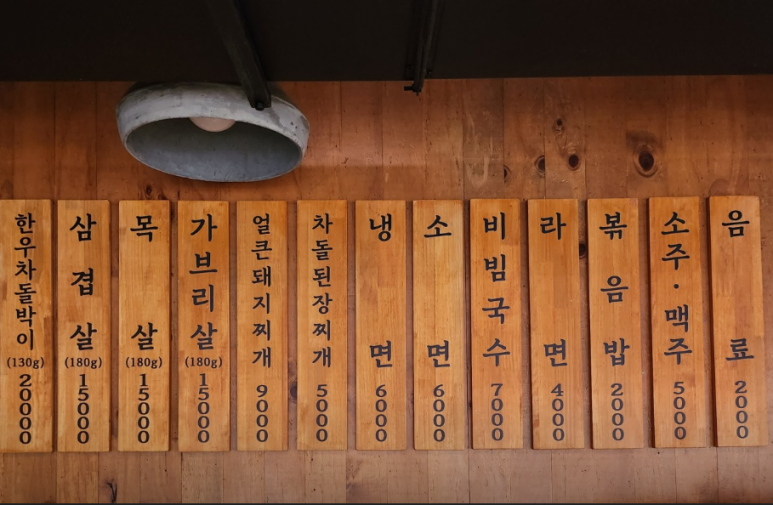 한우차돌박이
(130g)
20000
삼겹살
(180g)
15000
목살
(180g)
15000
가브리살
(180g)
15000
얼큰돼지찌개
9000
차돌된장찌개
5000
냉면
6000
소면
6000
비빔국수
7000
라면
4000
볶음밥
2000
소주·맥주
5000
음료
2000